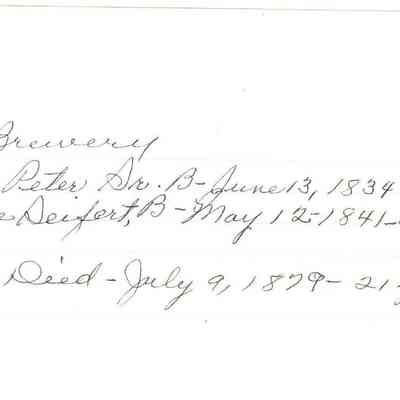 Brewery
Peter Sr. B- June 13, 1834
Seifert, B - May 12-1841-
Died - July 9, 1879 - 21